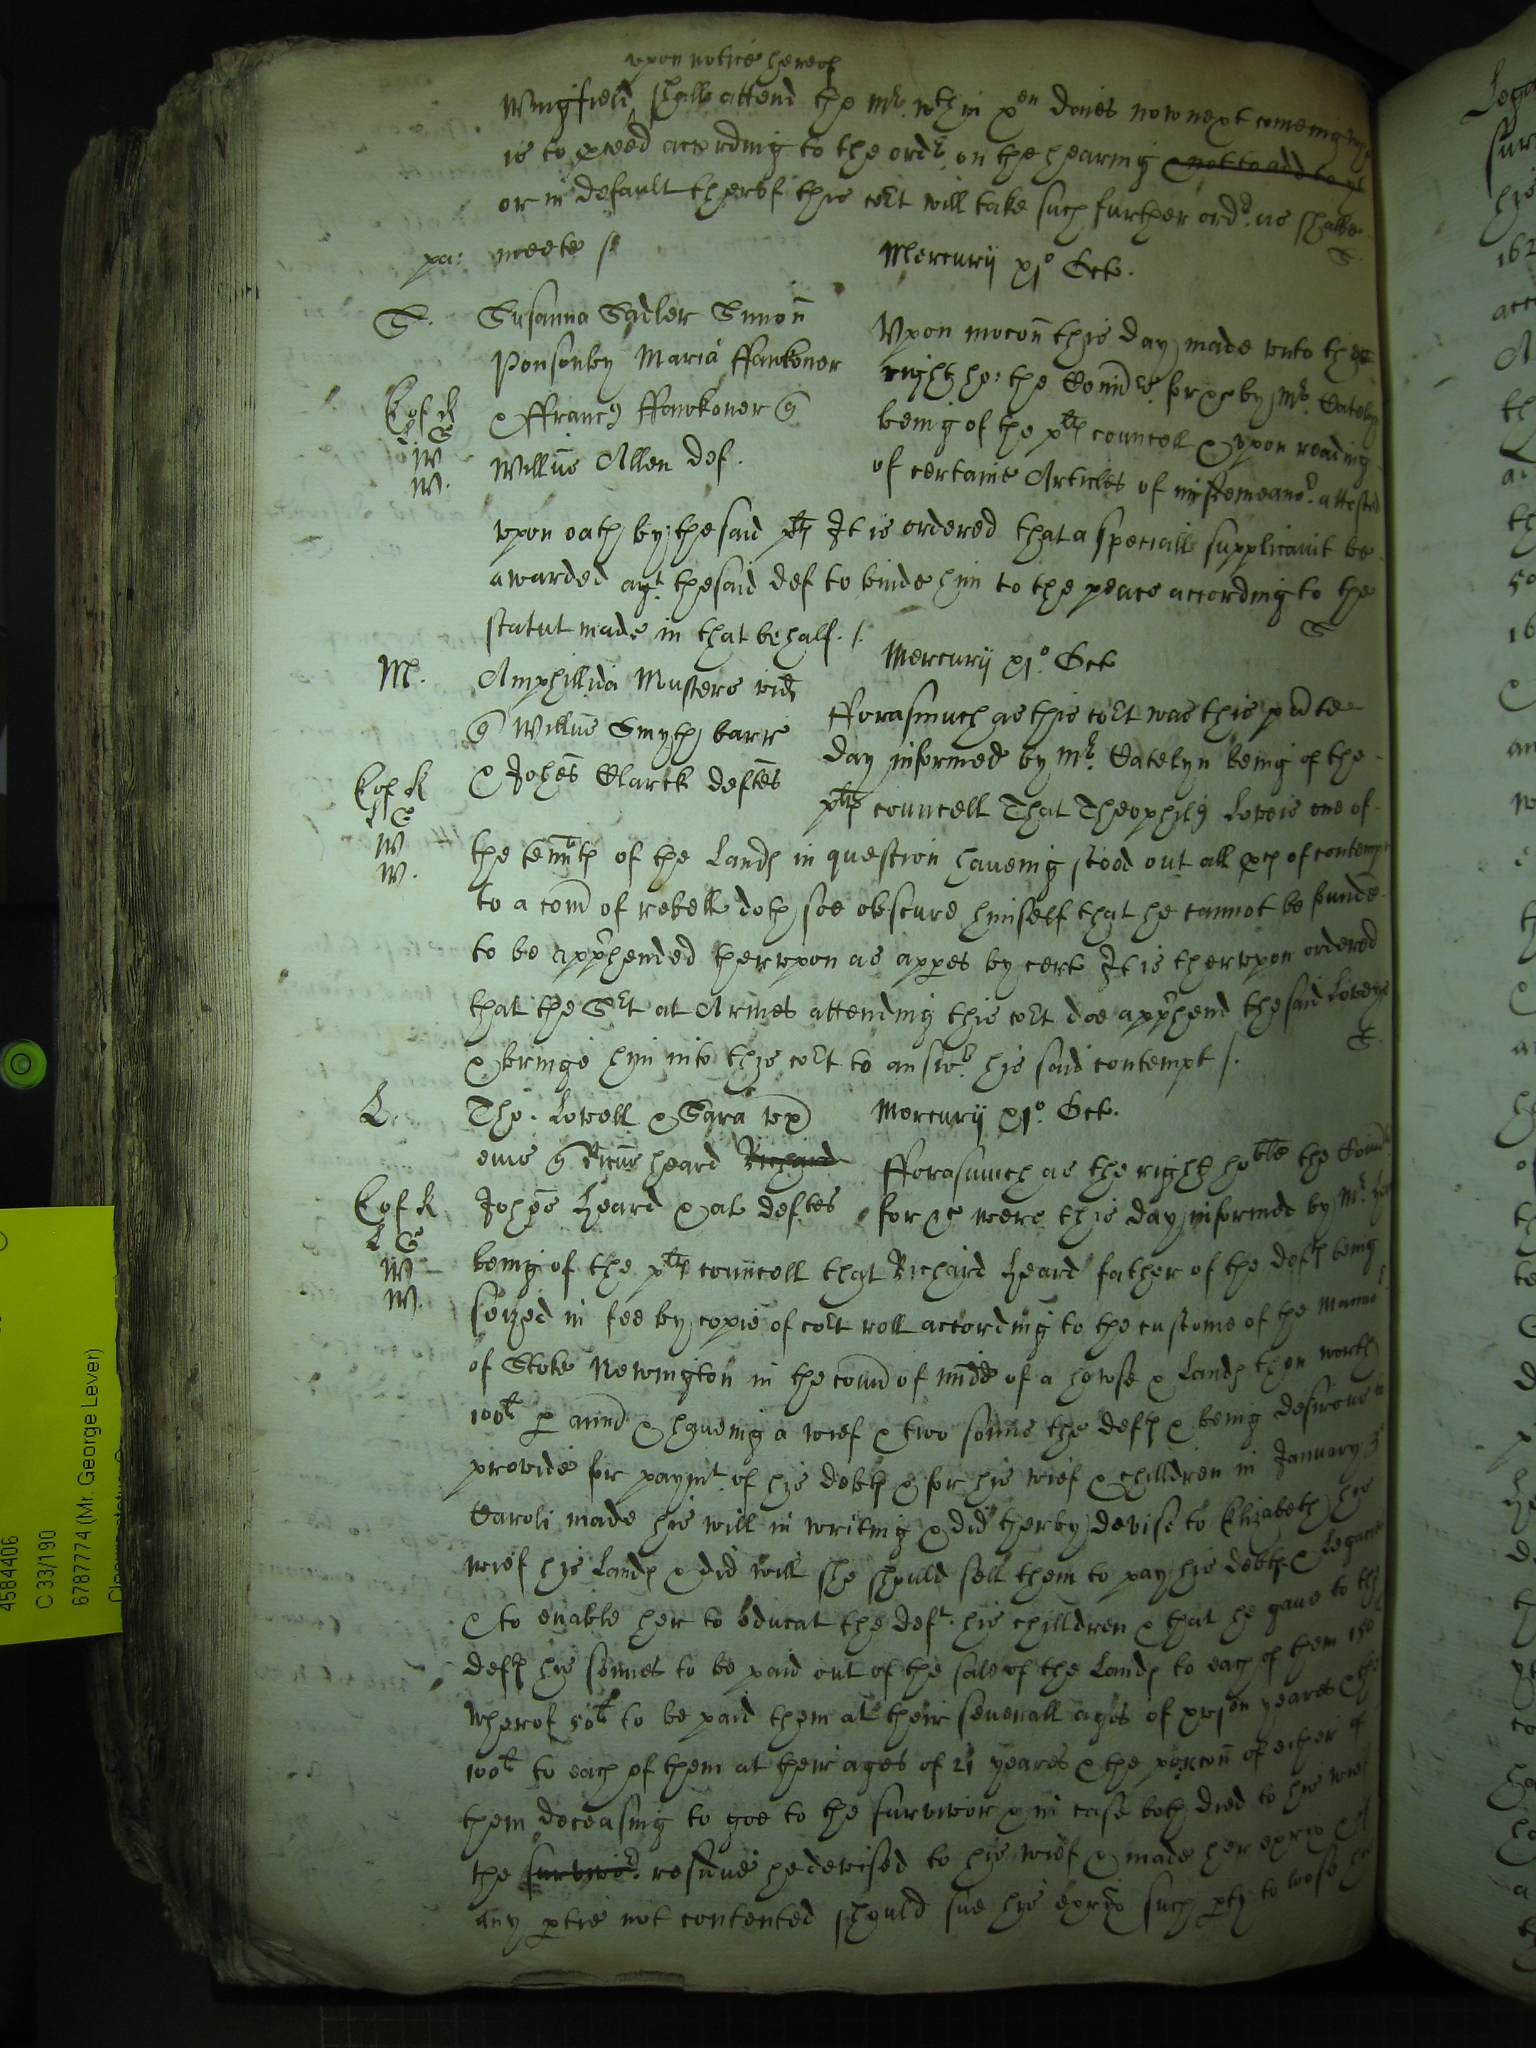 vpon notice hereof
Wingfield shall attend the Mr. wthin xen daies now next comeing
is to pceed according to the ordr on the hearing not to add to
or in default therof this cort will take such further ordr. as shalbe
pa: meete /
Mercurij xjo Octo.
S. Susanna Sadler Simon
Ponsonby Maria ffawkoner
& ffranc9 ffawkoner
Willus Allen def.
Vpon mocon this day made vnto the
right ho: the Comrs. for ye by Mr. Catelyn
being of the plts councell & vpon reading
of certaine Articles of misdemeanor. attested
vpon oath by the said plts It is ordered that a speciall supplicavit be
awarded agt. the said def to binde him to the peace according to the
statut made in that behalf. /.
S
Mercurij xjo. Octo
M. Amphillida Musters vid
Willus Smyth barr
& Johes Clarck deftes
Kof R
L S
W
W.
fforasmuch as this cort was this pnte
day informed by Mr. Catelyn being of the
plts councell That Theophil9 Loveis one of
the tennts of the Lands in question haveing stood out all pcs of contempt
to a com of rebell doth soe obscure himself that he cannot be funde
to be apprhended thervpon as appes by cert It is thervpon ordered
that the Srt at Armes attending this cort doe apprhend the said Loveys
& bringe him into this cort to answr. his said contempt /.
S.
L. Tho. Lovell & Sara vx
Mercurij xjo. Octo.
eius Ricus heard Richard
Johes Heard & al deftes
Kof R
L S
W
W.
fforasmuch as the right hoble the Comrs
for ye were this day informed by Mr.
being of the plts councell that Richard Heard father of the defts being
seized in fee by copie of cort roll according to the custome of the Mannor
of Stoke Newington in the coun of Midd of a howse & Lands then worth
100l p ann & haveing a wief & two sonns the defts & being desirous to
provide for paymt. of his debts & for his wief & children in January 3o
Caroli made his will in writing & did therby devise to Elizabeth his
wief his Lands & did will she should sell them to pay his debts & Legacies
& to enable her to educat the deft. his children & that he gaue to the
defts his sonnes to be paid out of the sale of the Lands to each of them 150l
wherof 50l to be paid them at their severall ages of yeares & the
100l to each of them at their ages of 21 yeares & the porcon of either of
them deceasing to goe to the survivor & in case both died to his wief
the survivor. residue he devised to his wief & made her exrix & if
any ptie not contented should sue his exrix such pty to loose his
4584406
C 33/190
6787774 (Mr. George Lever)